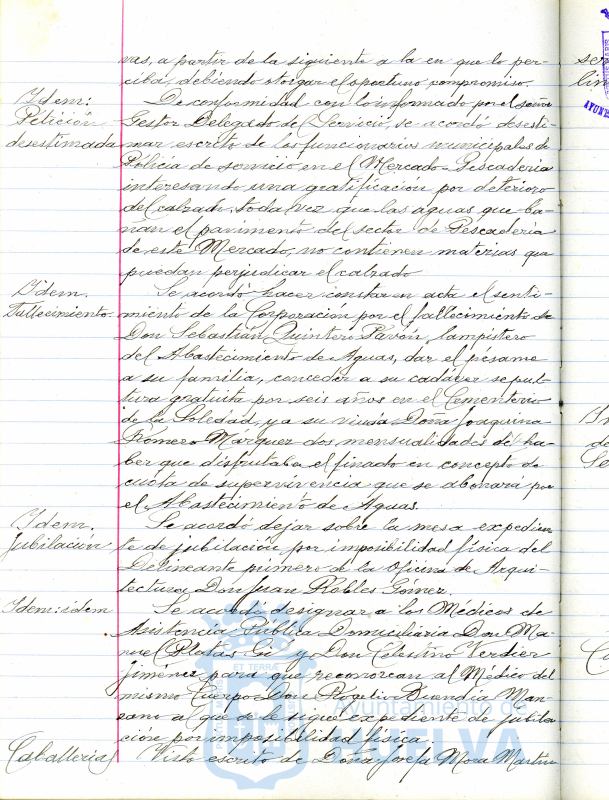 vas, a partir de la siguiente a la en que lo per-
ciba, debiendo otorgar el oportuno compromiso.
Idem:
Petición
desestimada
De conformidad con lo informado por el señor
Gestor Delegado del Servicio, se acordó desesti-
mar escrito de los funcionarios municipales de
Policía de servicio en el Mercado-Pescadería
interesando una gratificación por deterioro
del calzado, toda vez que las aguas que ba-
ñan el pavimento del sector de Pescadería
de este Mercado, no contienen materias que
puedan perjudicar el calzado
Idem.
Fallecimiento.
Se acordó hacer constar en acta el senti-
miento de la Corporación por el fallecimiento de
Don Sebastián Quintero Pavón, lampistero
del Abastecimiento de Aguas, dar el pésame
a su familia, conceder a su cadáver sepul-
tura gratuita por seis años en el Cementerio
de la Soledad, y a su viuda Doña Joaquina
Romero Márquez dos mensualidades del ha-
ber que disfrutaba el finado en concepto de
cuota de supervivencia que se abonará por
el Abastecimiento de Aguas.
Idem.
Jubilación
Se acordó dejar sobre la mesa expedien-
te de jubilación por imposibilidad física del
Delineante primero de la Oficina de Arqui-
tectura, Don Juan Robles Gómez.
Idem: idem
Se acordó designar a los Médicos de
Asistencia Pública Domiciliaria Don Ma-
nuel Platas Gi y Don Celestino Verdier
Jiménez para que reconozcan al Médico del
mismo Cuerpo Don Rogelio Buendia Man-
zano al que se le sigue expediente de jubila-
ción por imposibilidad física.
Caballerías
Visto escrito de Doña Josefa Mora Martín
Ayuntamiento de
HUELVA
ET TERRÆ